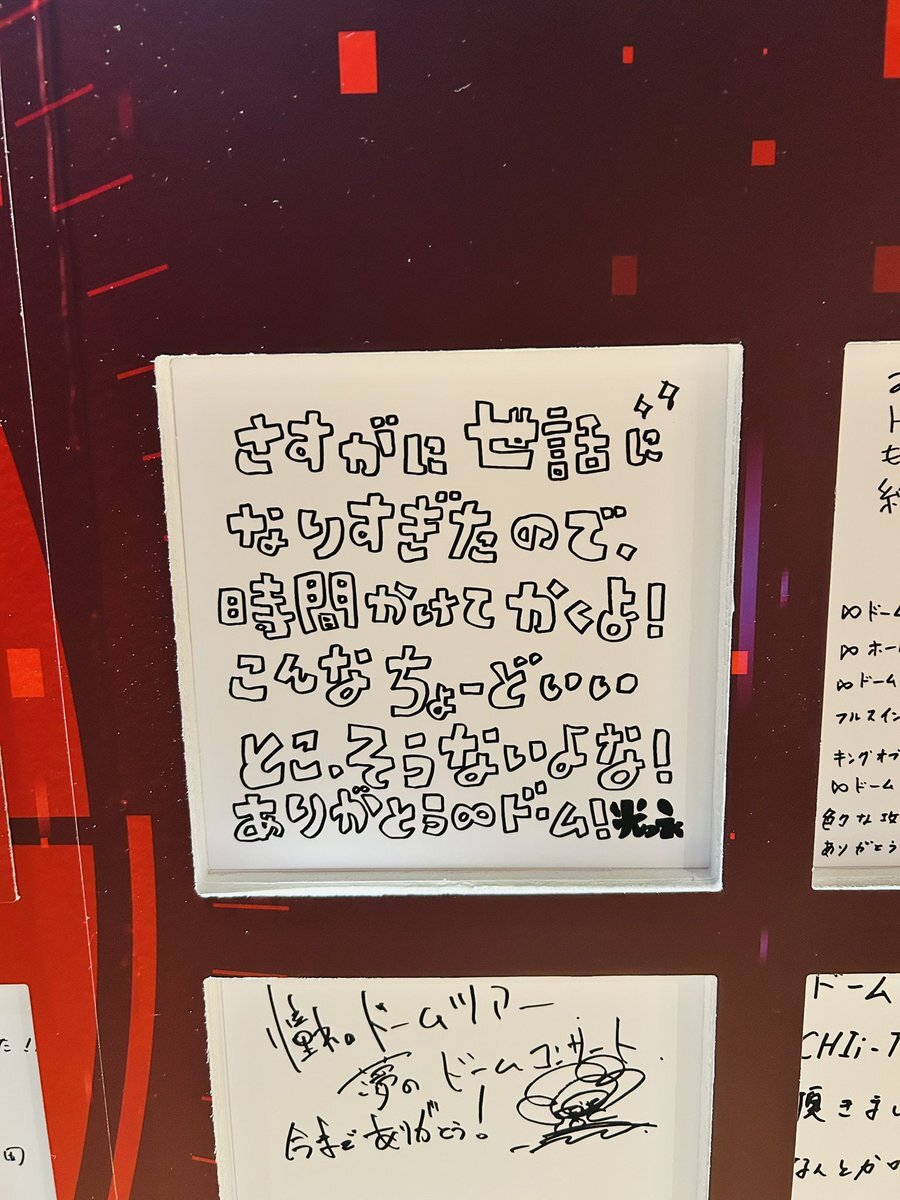 さすがに世話に
なりすぎたので、
時間かけてかくよ!
こんなちょーどいい
とこ、そうないよな!
ありがとう∞ドーム!光永
憧れのドームツアー
夢のドームコンサート
今までありがとう!
∞ドーム
∞ホー
∞ドーム
フルスイン
キングオブ
∞ドーム
色々な
ありがとう
ドーム
CHIi-T
頂きまし
なんとか
た!!